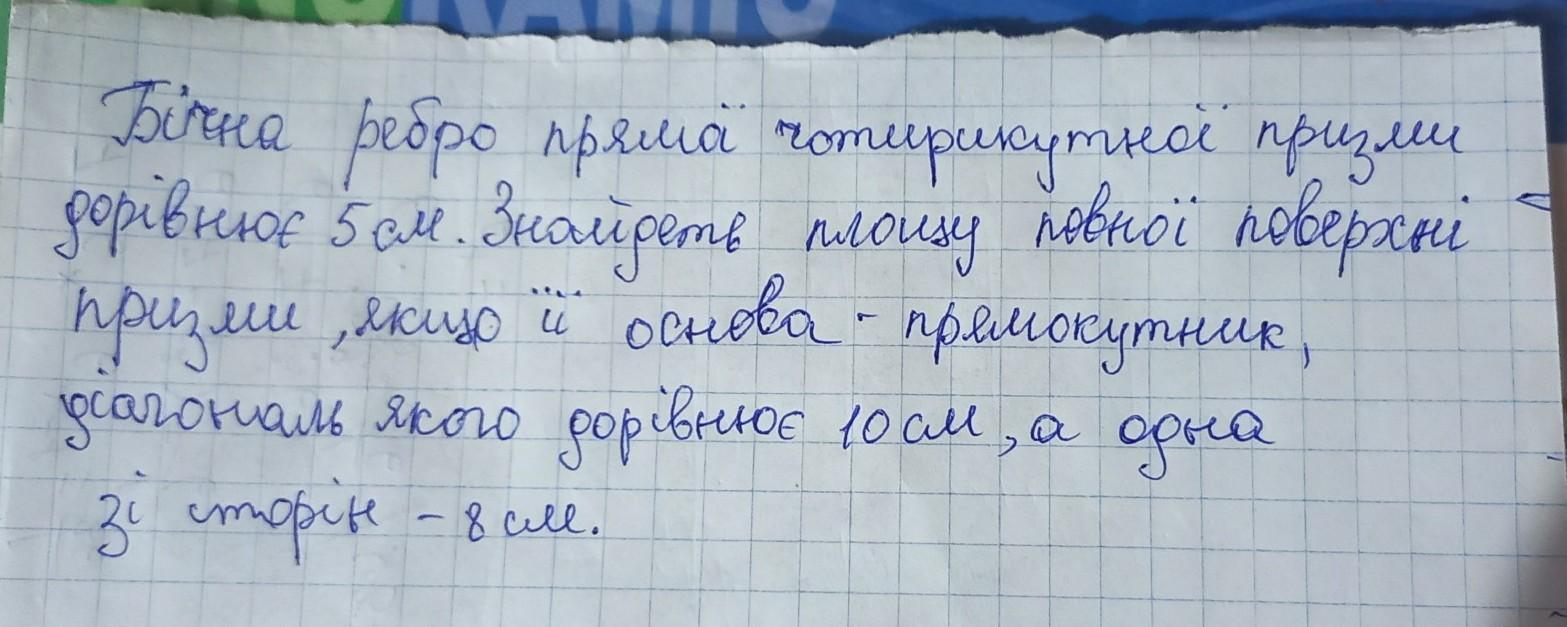 Бічна ребро прямої чотирикутної призми
дорівнює 5 см. Знайдеть площу повної поверхні
призми, якщо її основа - прямокутник,
діагональ якого дорівнює 10 см, а одна
зі сторін - 8 см.